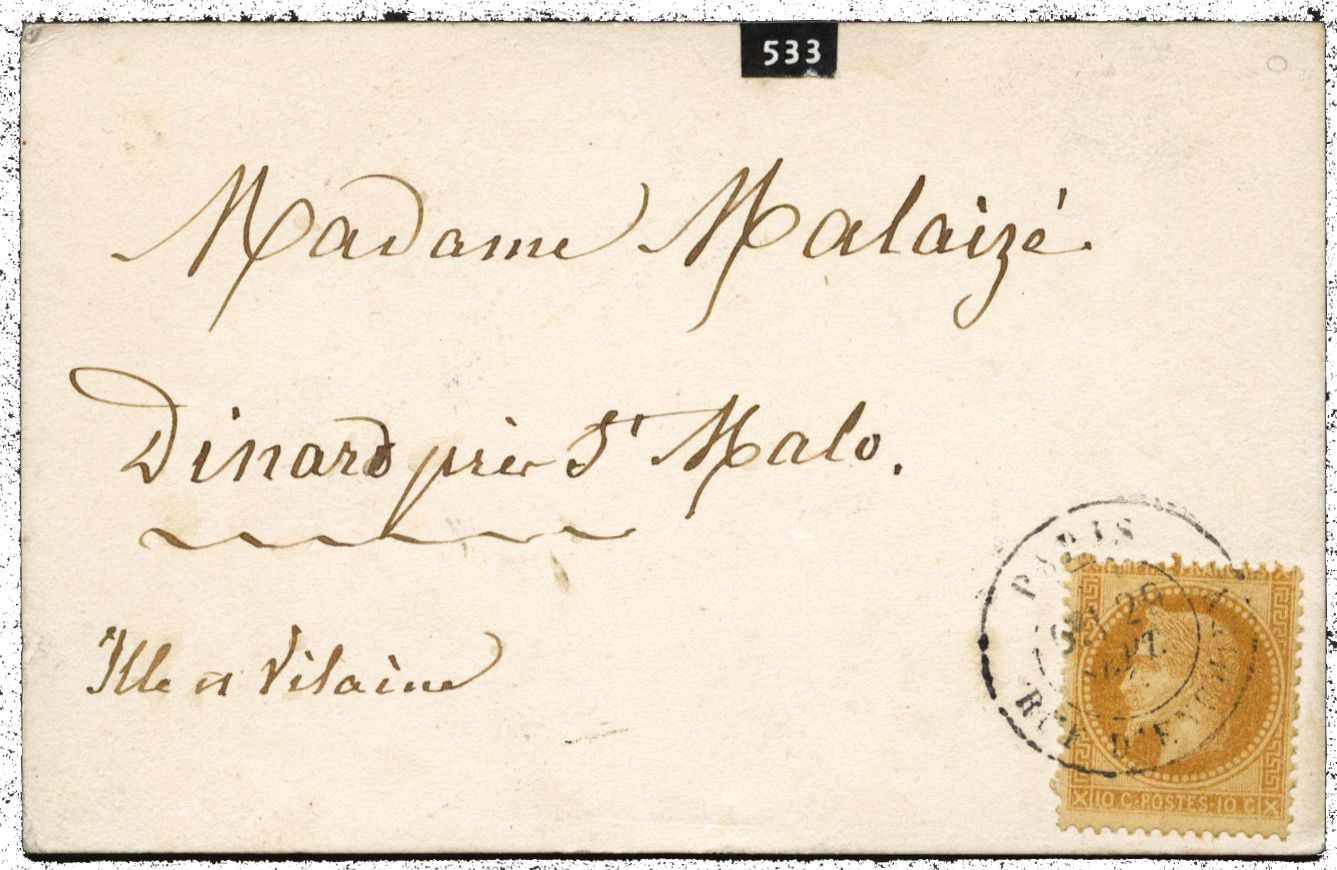 533
Madame Malaizé.
Dinard près St Malo.
Ille et Vilaine
PARIS
26
SEPT.
RUE D'ENGHIEN
10 C·POSTES·10 C